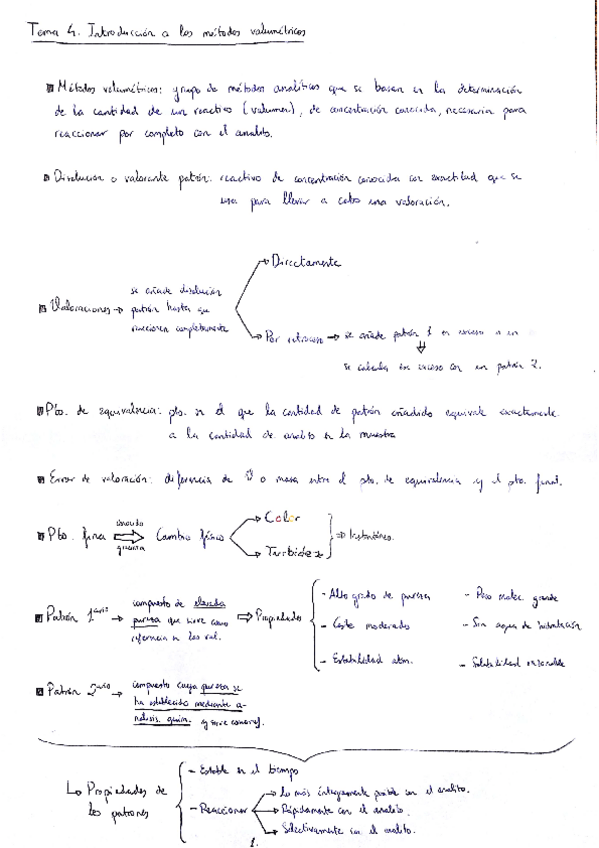 Tema 4. Introducción a los métodos volumétricos
Métodos volumétricos: grupo de métodos analíticos que se basan en la determinación
de la cantidad de un reactivo (volumen), de concentración conocida, necesaria para
reaccionar por completo con el analito.
Disolución o valorante patrón: reactivo de concentración conocida con exactitud que se
usa para llevar a cabo una valoración.
Directamente
se añade disolución
Valoraciones → patrón hasta que
reaccionen completamente
Por retroceso → se añade patrón 1 en exceso a un
se calcula ese exceso con un patrón 2.
Pto. de equivalencia: pto. en el que la cantidad de patrón añadido equivale exactamente
a la cantidad de analito en la muestra
Error de valoración: diferencia de V o masa entre el pto. de equivalencia y el pto. final.
Color
Pto. final ⇒ Cambio físico ⇒ Instantáneo.
Turbidez
compuesto de elevada
Patrón 1ario → pureza que sirve como ⇒ Propiedades
referencia en las val.
- Alto grado de pureza - Peso molec. grande
- Coste moderado - Sin agua de hidratación
- Estabilidad atm. - Solubilidad razonable
compuesto cuya pureza se
Patrón 2ario → ha establecido mediante a-
nálisis quím. y sirve como ref.
↳ Propiedades de
los patrones
- Estable en el tiempo
→ Lo más íntegramente posible con el analito.
- Reaccionar → Rápidamente con el analito.
→ Selectivamente con el analito.
1.